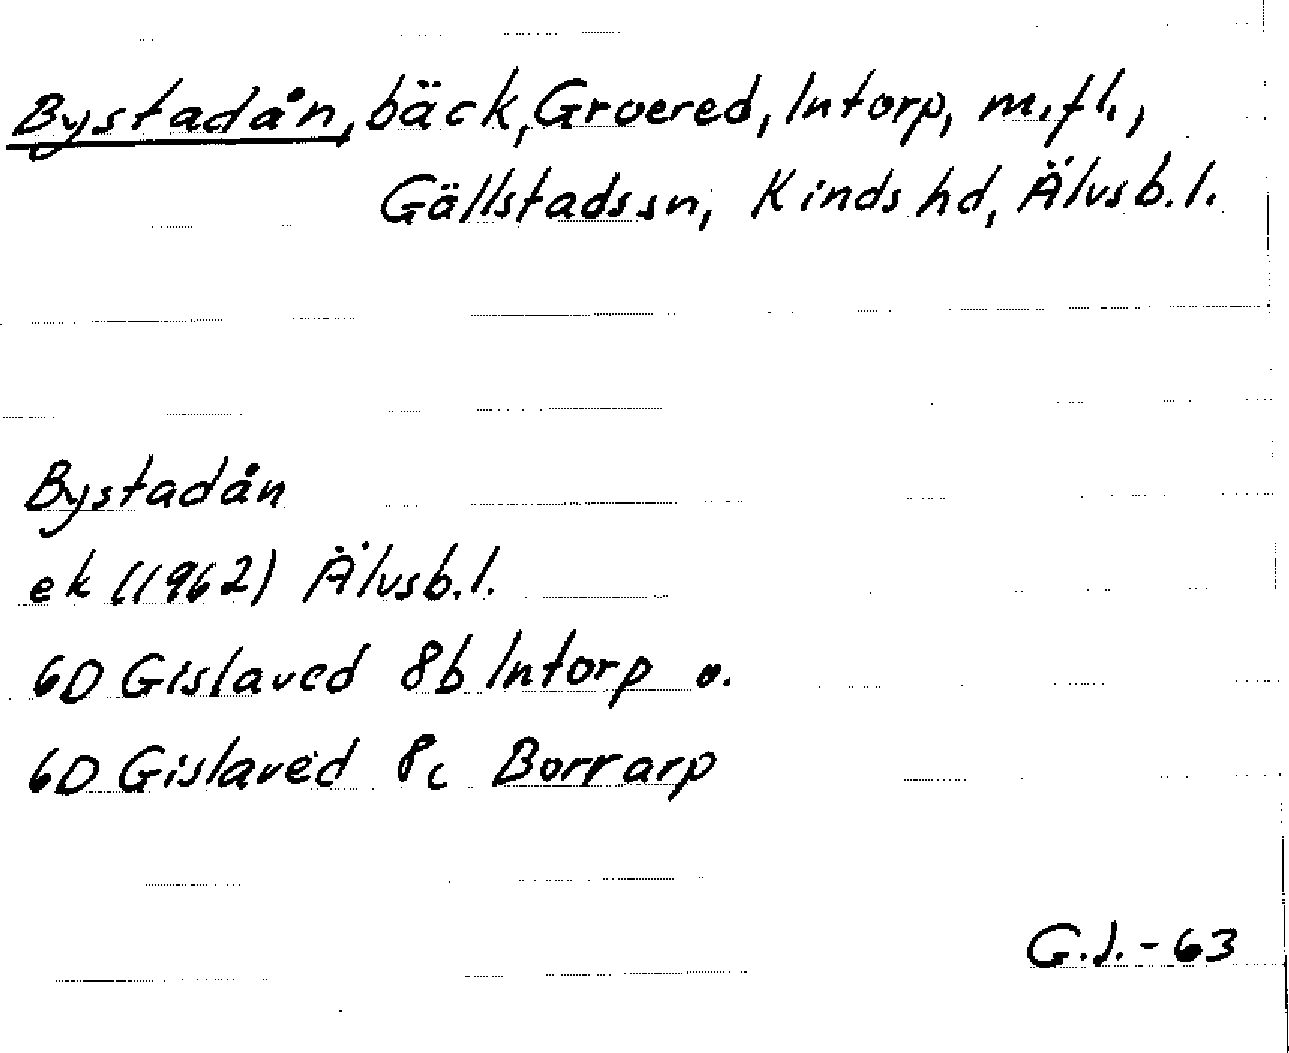 Bystadån, bäck, Groered, Intorp, m.fl.,
Gällstads sn, Kinds hd, Älvsb.l.
Bystadån
ek (1962) Älvsb.l.
6D Gislaved 8b Intorp o.
6D Gislaved 8c Borrarp
G.J.-63